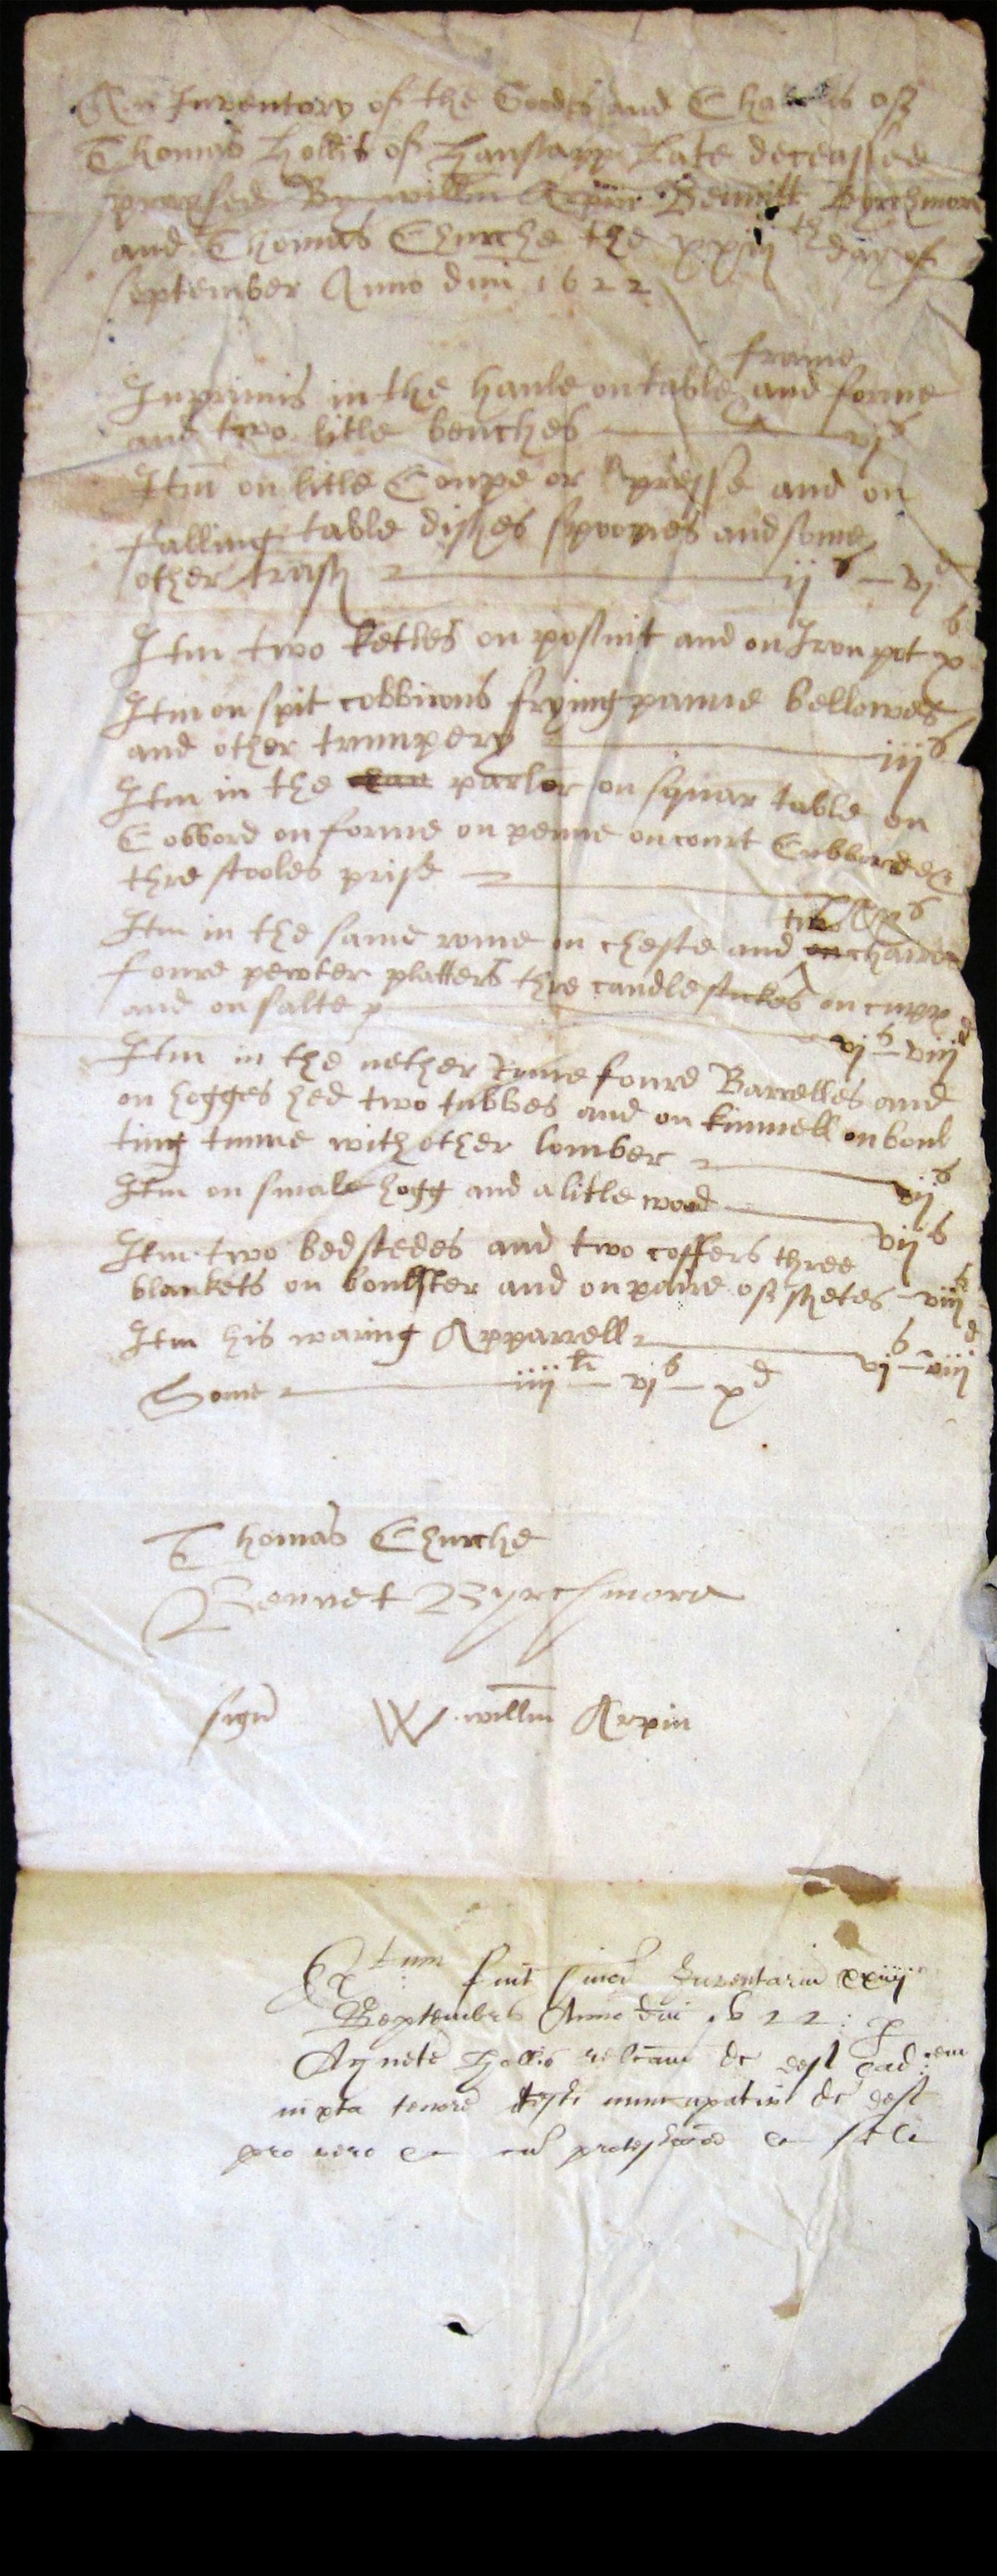 An Inventory of the Goodes and Chattels of
Thomas Hollis of Hanslapp Late deceassed
praysed By willm Arpin Bennitt Byrchmore
and Thomas Churche the xxiij th day of
September Anno dni 1622
Inprimis in the haule on table frame and forme
and two litle benches vj s
Itm on litle Coupe or presse and on
falling table dishes spoones and some
other trash ij s vj d
Itm two ketles on posnit and on Iron pot x s
Itm on spit cobbirons frying panne bellowes
and other trumpery iij s
Itm in the parlor on squar table on
Cobbord on forme on penne on court Cubborde &
thre stooles prise
Itm in the same rome on cheste and two chaires
foure pewter platters thre candlestickes on cupp
and on salte vj s viij d
Itm in the nether rome foure Barrelles and
on hogges hed two tubbes and on kimnell on boul
ting tunne with other lomber vij s
Itm on smale hogg and a litle wood vij s
Itm two bedstedes and two coffers three
blankets on boulster and on paire of shetes viij s
Itm his waring Apparrell vj s viij d
Some iiij li vj s x d
Thomas Churche
Bennet Byrchmore
sign W willm Arpin
Ex tum fuit Inventariu xxiiij
Septembris Anno dni 1622 : p
Agnete Hollis relictam def
iuxta tenore testi nuncupativi def
pro vero